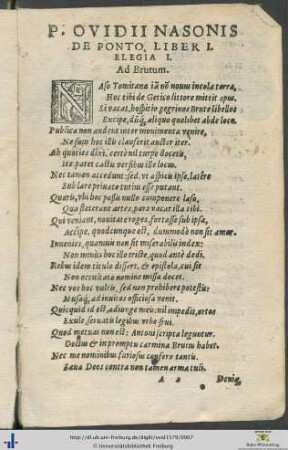 P. OVIDII NASONIS
DE PONTO, LIBER I.
ELEGIA I.
Ad Brutum.
NAso Tomitanæ iã nõ nouus incola terræ,
Hoc tibi de Getico littore mittit opus.
Si vacat, hospitio peregrinos Brute libellos
Excipe, dũq́; aliquo quolibet abde loco.
Publica non audent inter monimenta venire,
Ne suus hoc illis clauserit auctor iter.
Ah quoties dixi, certè nil turpe docetis,
ite, patet castis versibus ille locus.
Nec tamen accedunt: sed, vt aspicis ipse, latêre
Sub lare priuato tutius esse putant.
Quæris, vbi hos possis nullo componere læso,
Qua steterant artes, pars vacat illa tibi.
Qui veniant, nouitate roges, fortasse sub ipsa,
Accipe, quodcunque est, dummodò non sit amor.
Inuenies, quamuis non sit miserabilis index:
Non minùs hoc illo triste, quod antè dedi.
Rebus idem titulo differt, & epistola, cui sit
Non occultato nomine missa docet.
Nec vos hoc vultis, sed nec prohibere potestis:
Musaq́; ad inuitos officiosa venit.
Quicquid id est, adiunge meis: nil impedit, ortos
Exule, seruatis legibus vrbe frui.
Quod metuas non est: Antoni scripta leguntur.
Doctus & in promptu carmina Brutus habet.
Nec me nominibus furiosus confero tantis.
Sæua Deos contra non tamen arma tuli.
A 2
Deniq;
http://dl.ub.uni-freiburg.de/diglit/ovid1579/0007
© Universitätsbibliothek Freiburg
Baden-Württemberg